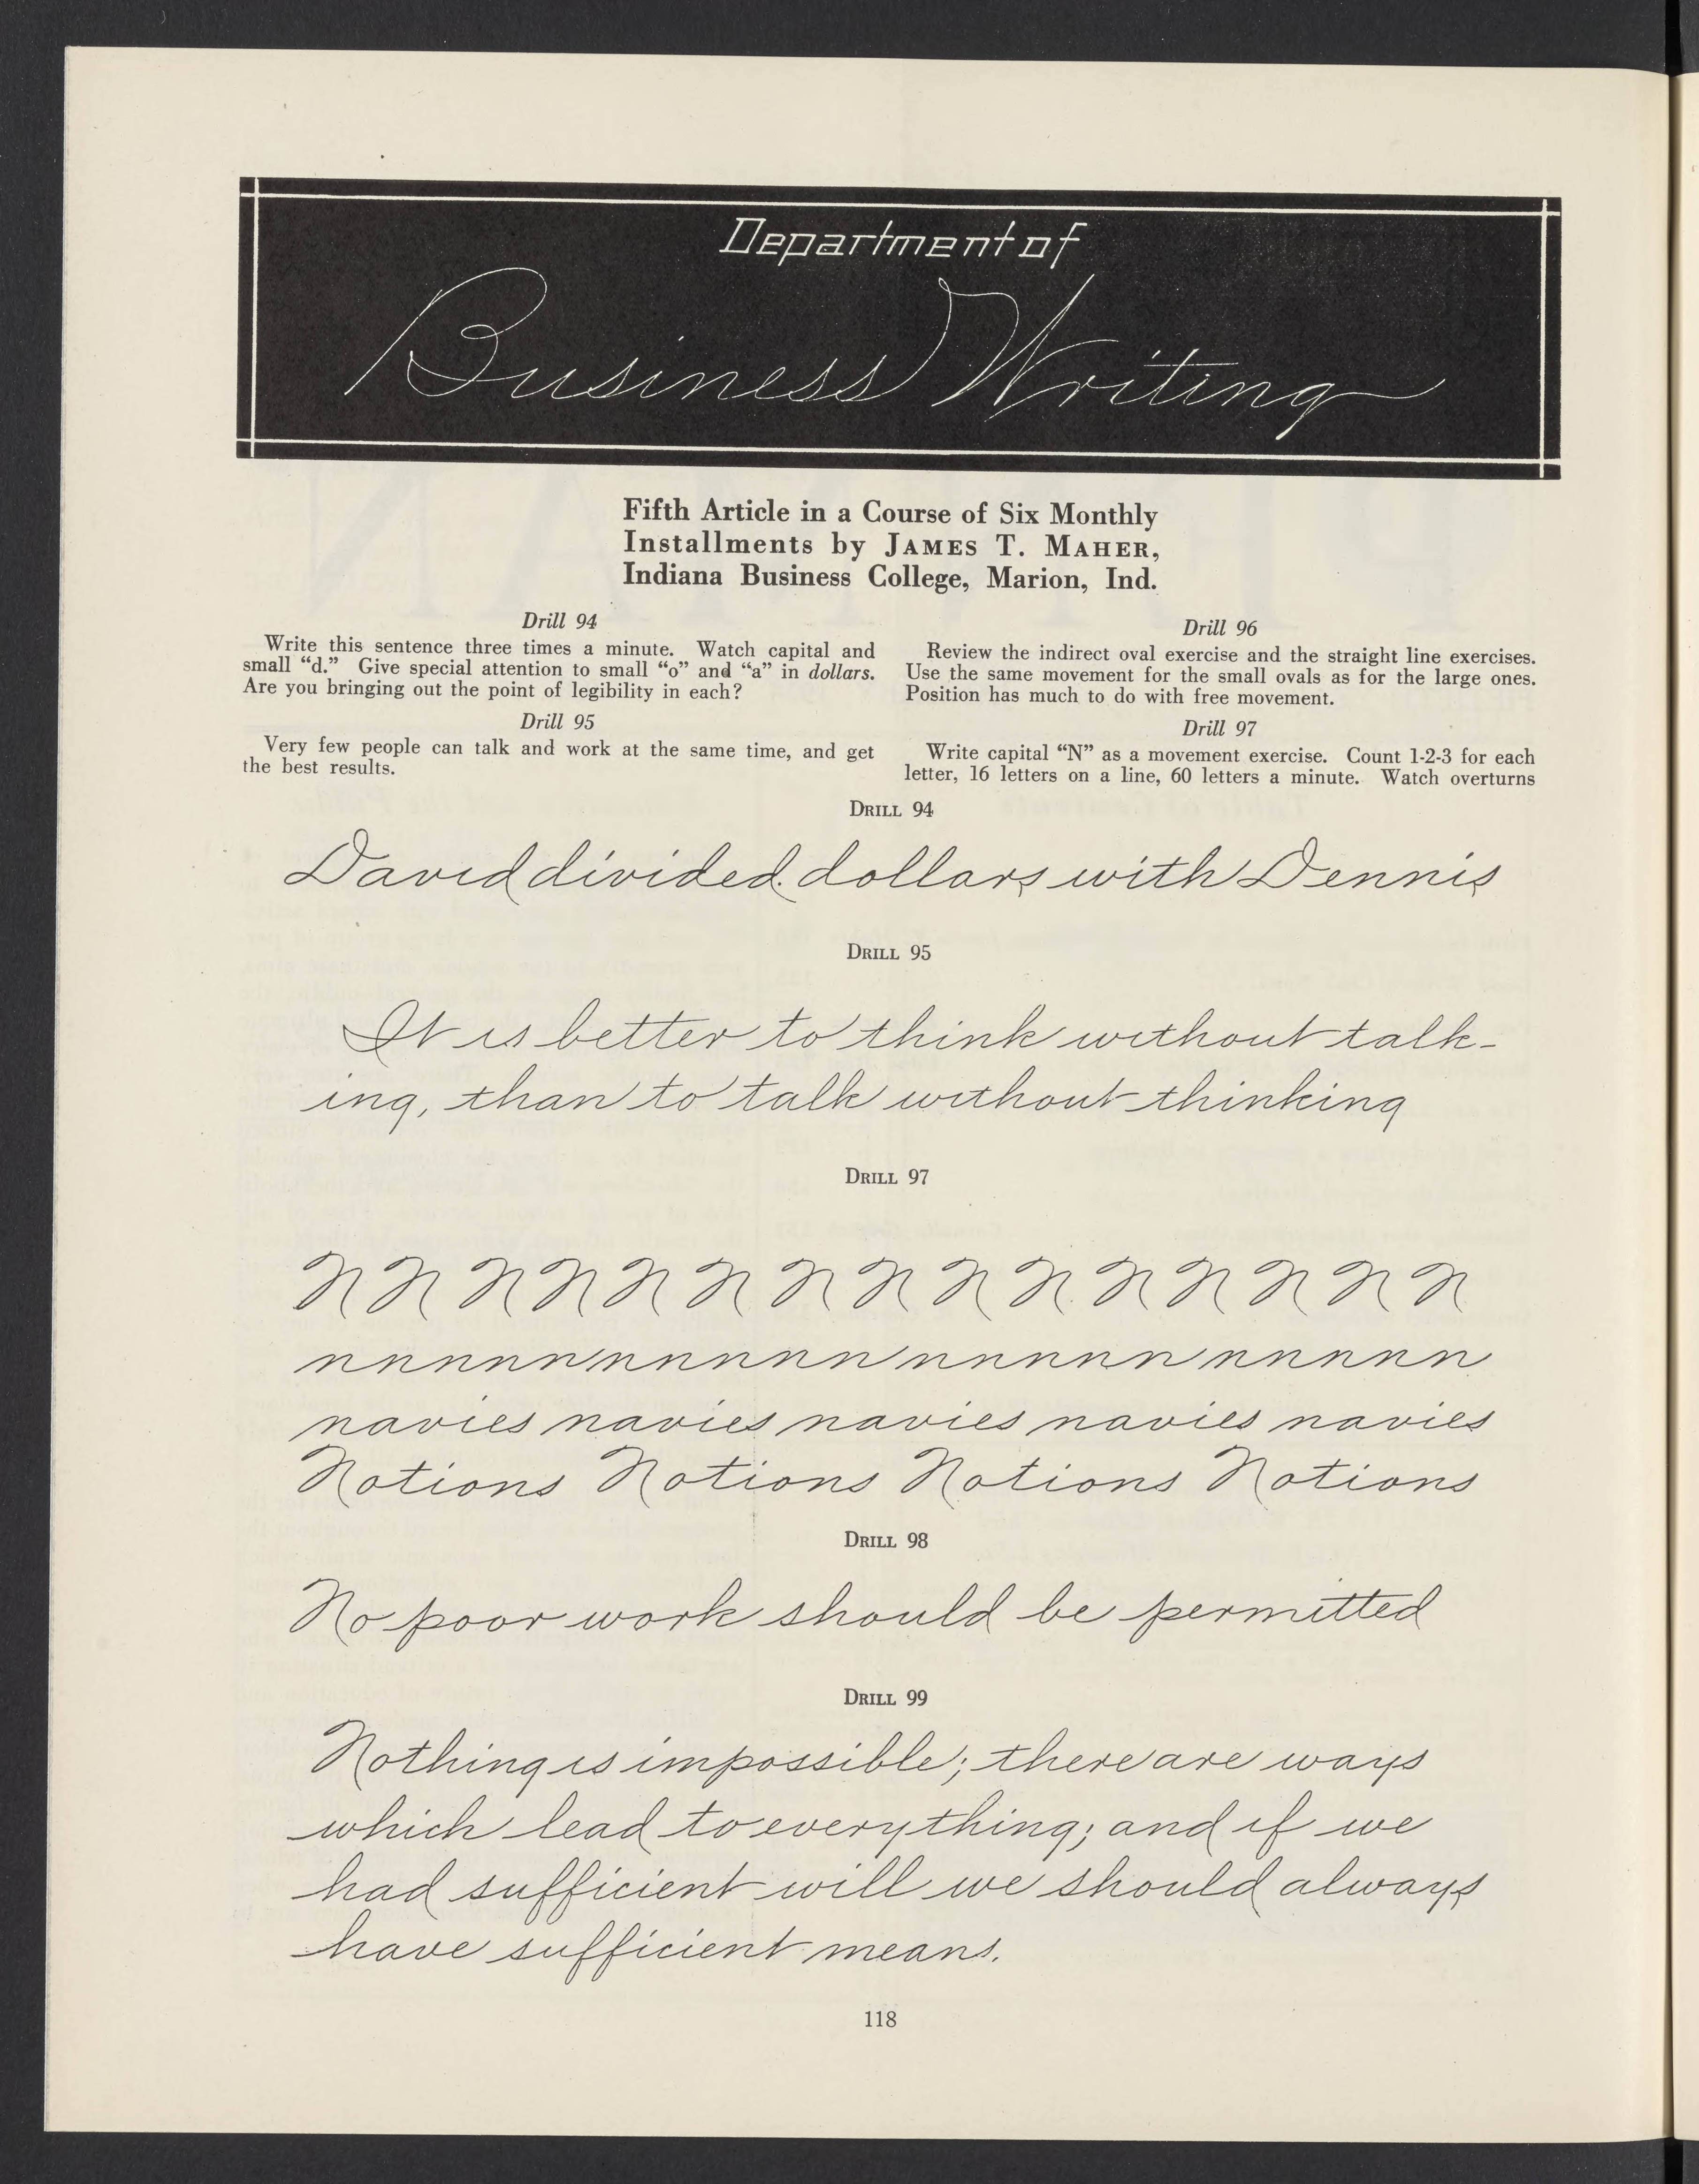 Department of
Business Writing
Fifth Article in a Course of Six Monthly
Installments by JAMES T. MAHER,
Indiana Business College, Marion, Ind.
Drill 94
Write this sentence three times a minute. Watch capital and
small “d.” Give special attention to small “o” and “a” in dollars.
Are you bringing out the point of legibility in each?
Drill 95
Very few people can talk and work at the same time, and get
the best results.
Drill 96
Review the indirect oval exercise and the straight line exercises.
Use the same movement for the small ovals as for the large ones.
Position has much to do with free movement.
Drill 97
Write capital “N” as a movement exercise. Count 1-2-3 for each
letter, 16 letters on a line, 60 letters a minute. Watch overturns
DRILL 94
David divided dollars with Dennis
DRILL 95
It is better to think without talk-
ing, than to talk without thinking
DRILL 97
N N N N N N N N N N N N N N N
nnnnnn nnnnnn nnnnnn nnnnnn
navies navies navies navies navies
Notions Notions Notions Notions
DRILL 98
No poor work should be permitted
DRILL 99
Nothing is impossible; there are ways
which lead to everything; and if we
had sufficient will we should always
have sufficient means.
118